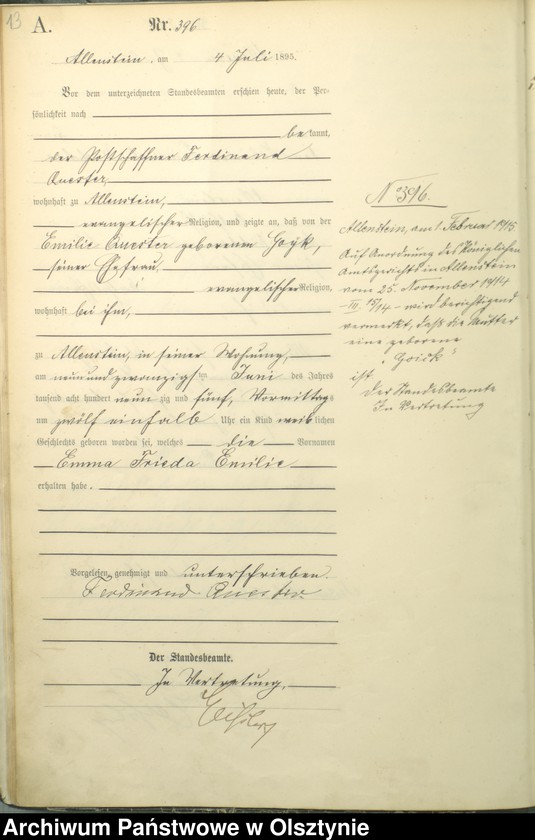 13
A.
Nr. 396
Allenstein, am 4 Juli 1895.
Vor dem unterzeichneten Standesbeamten erschien heute, der Per-
sönlichkeit nach
bekannt,
der Postschaffner Ferdinand
Querter,
wohnhaft zu Allenstein,
evangelischer Religion, und zeigte an, daß von der
Emilie Querter geborenen Goyk,
seiner Ehefrau,
evangelischer Religion,
wohnhaft bei ihm,
zu Allenstein, in seiner Wohnung,
am neunundzwanzigsten Juni des Jahres
tausend acht hundert neunzig und fünf, Vormittags
um zwölf einhalb Uhr ein Kind weiblichen
Geschlechts geboren worden sei, welches die Vornamen
Emma Frieda Emilie
erhalten habe.
Vorgelesen, genehmigt und unterschrieben.
Ferdinand Querter.
Der Standesbeamte.
In Vertretung,
No 396.
Allenstein, am 1. Februar 1915.
Auf Anordnung des Königlichen
Amtsgerichts in Allenstein
vom 25. November 1914
-III. 15/14- wird berichtigend
vermerkt, daß die Mutter
eine geborene
"Goick"
ist.
Der Standesbeamte
In Vertretung
Archiwum Państwowe w Olsztynie